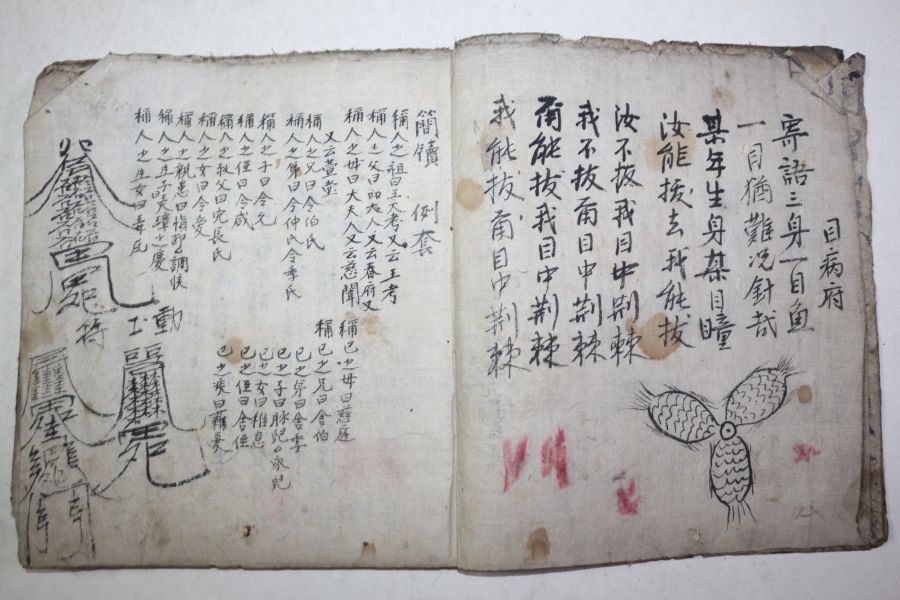 目病府
寄語三身一目魚
一目猶難况針哉
某年生身某目瞳
汝能拔去我能拔
汝不拔我目中荆棘
我不拔甭目中荆棘
甭能拔我目中荆棘
我能拔甭目中荆棘
簡牘 例套
稱人之祖曰王大考又云王考
稱人之父曰大人又云春府又
稱人之母曰大夫人又云慈闈
又云萱堂
稱人之兄曰令伯氏
稱人之弟曰令仲氏令季氏
稱人之子曰令允
稱人之侄曰令咸
稱人之叔父曰完長氏
稱人之女曰令愛
稱人之親患曰愼節調候
稱人之生子曰弄璋之慶
稱人之生女曰弄瓦
稱己之母曰慈庭
稱己之兄曰舍伯
己之弟曰舍季
己之子曰豚兒家兒
己之女曰稚息
己之侄曰舍侄
動土
符